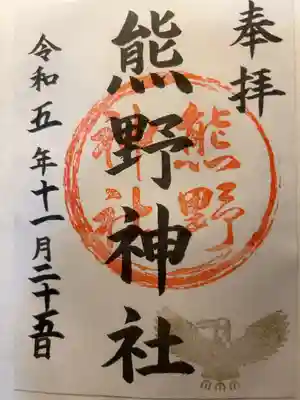 奉拝
熊野神社
熊野
神社
令和五年十一月二十五日